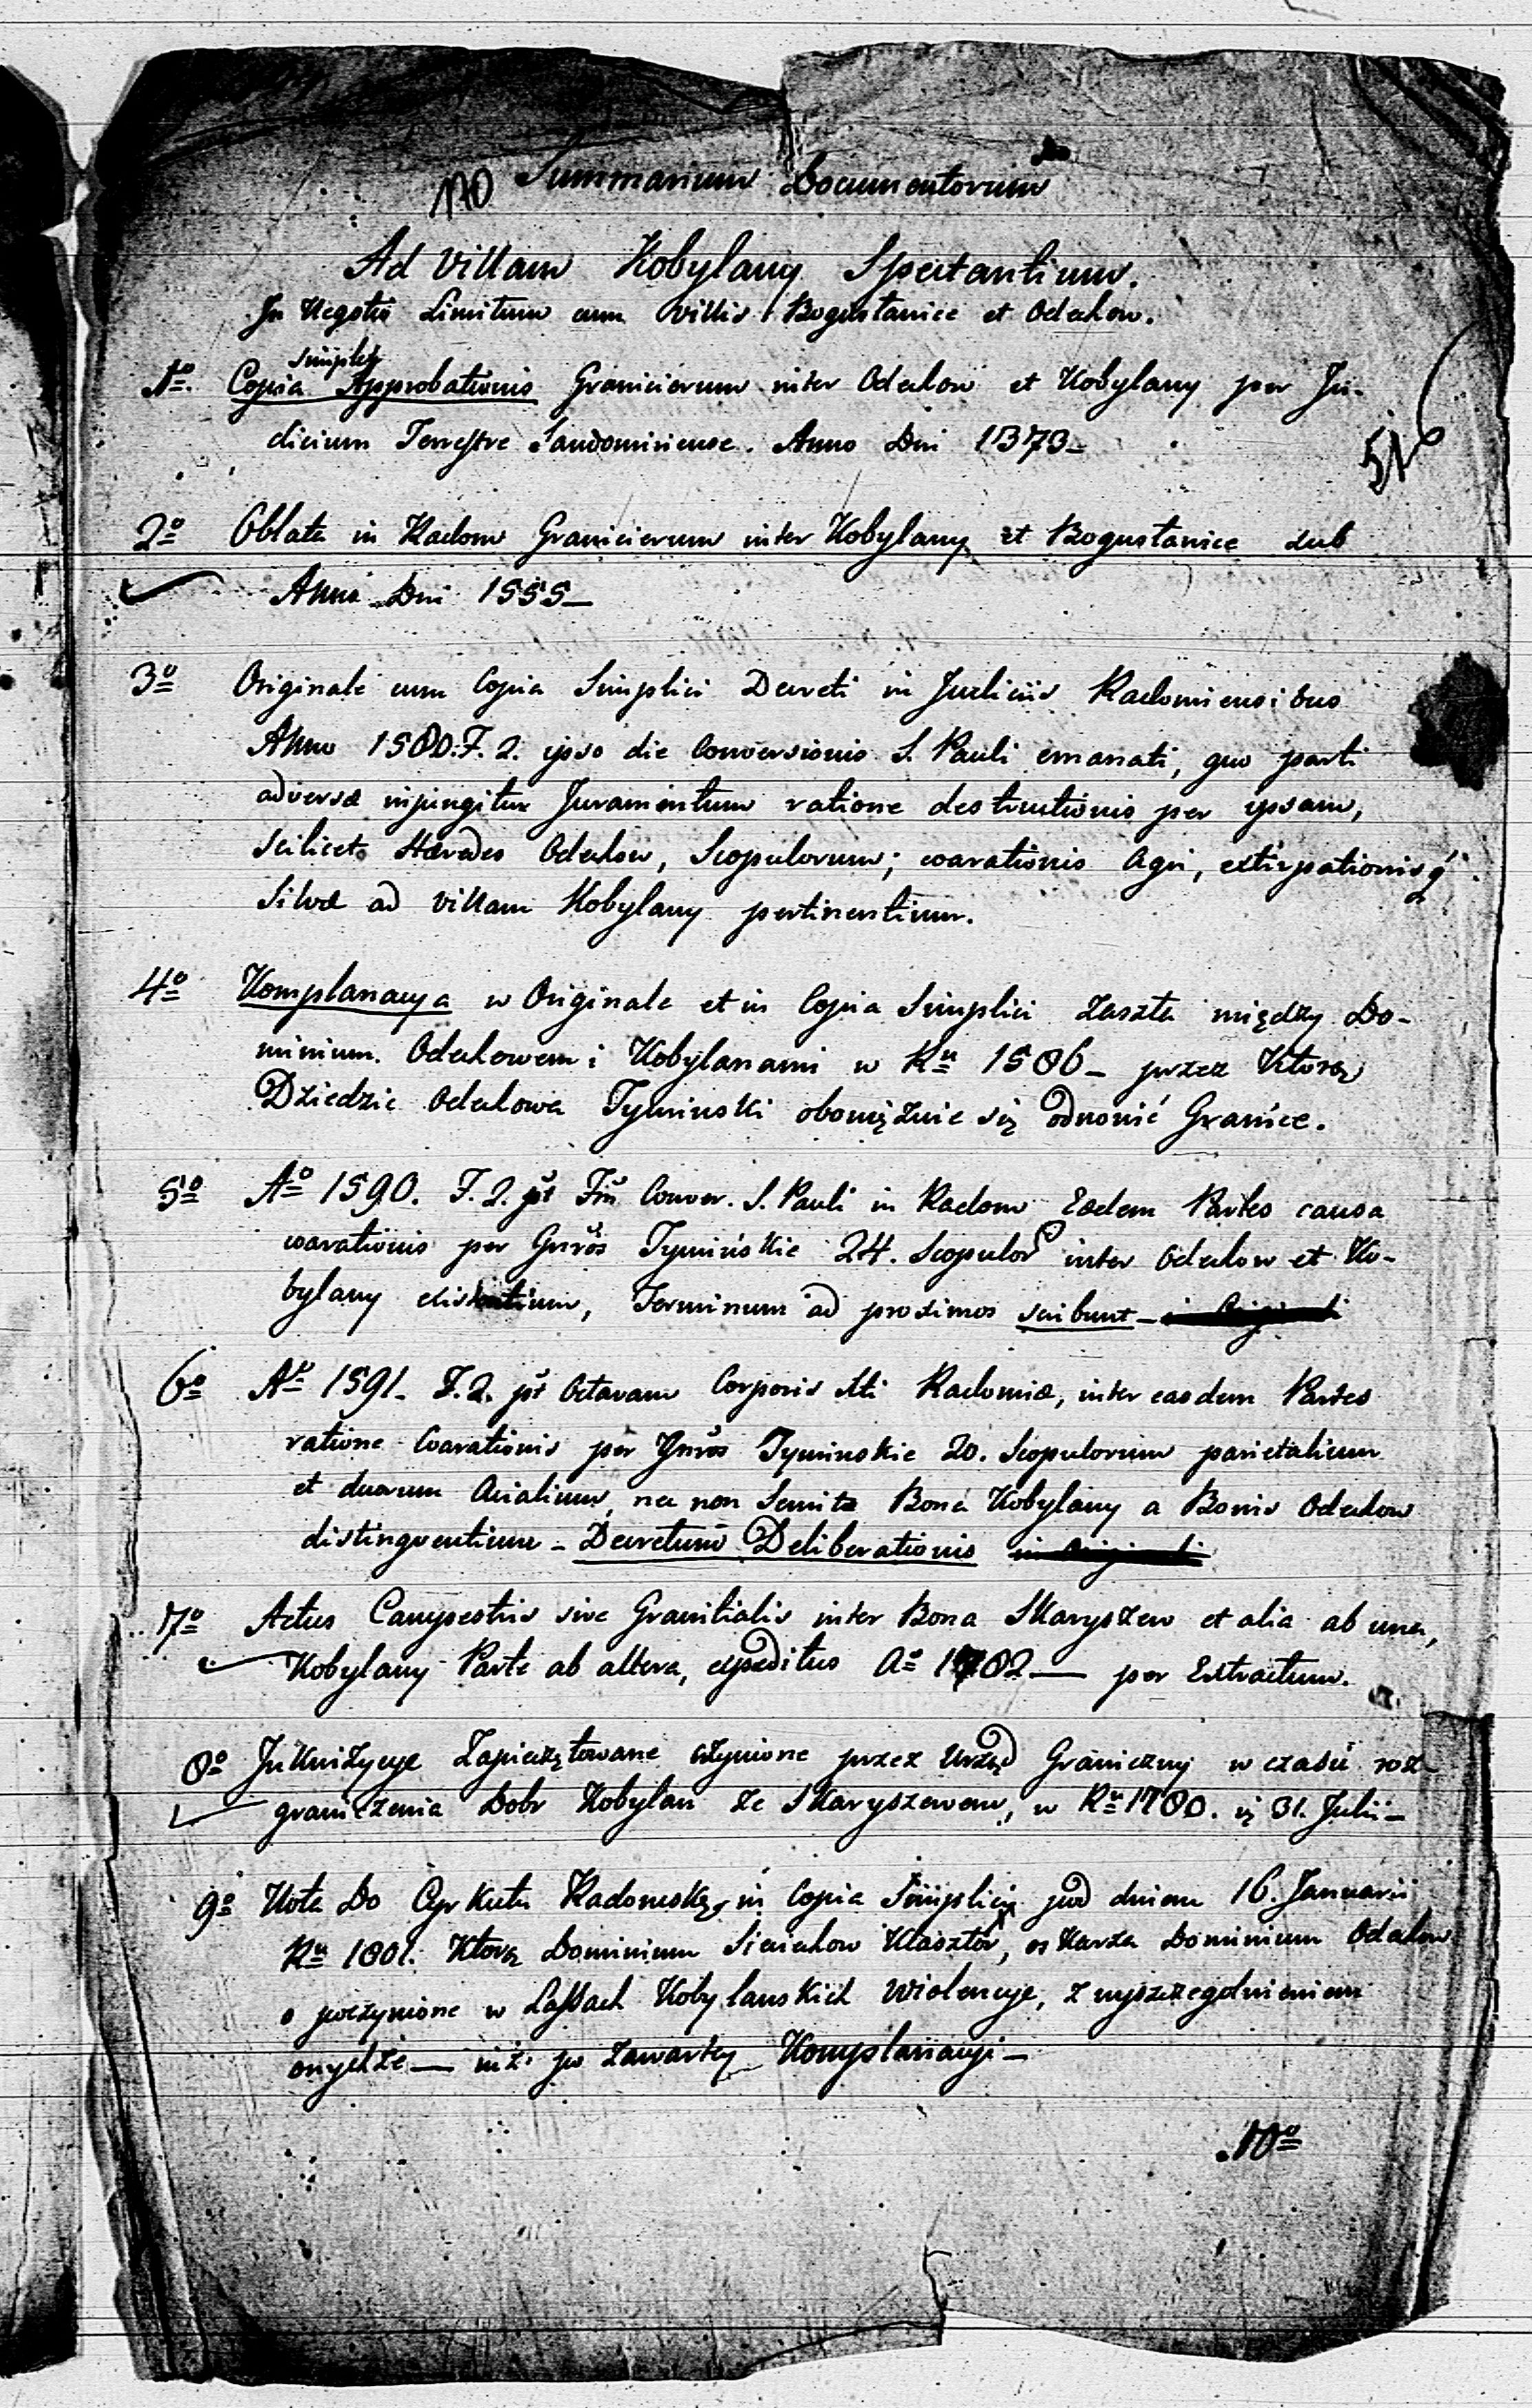 170 Summarium Documentorum
Ad Villam Kobylany Spectantium.
In Negotio Limitum cum Villis Bogusławice et Odechow.
simplex
1º. Copia Approbationis Granicierum inter Odechow et Kobylany per Ju-
dicium Terrestre Sandomiriense. Anno Dni 1373 –
51
2º Oblata in Radom Granicierum inter Kobylany et Bogusławice sub
Anno Dni 1555 –
3º Originale cum Copia Simplici Decreti in Judiciis Radomiensibus
Anno 1580. F. 2. ipso die Conversionis S. Pauli emanati, quo parti
adversæ injungitur Juramentum ratione destructionis per ipsam,
scilicet Hæredes Odechow, Scopulorum; exarationis Agri, extirpationisq́
Silvæ ad Villam Kobylany pertinentium.
4º Komplanacya w Originale et in Copia Simplici zaszła między Do-
minium. Odechowem i Kobylanami w Rᵘ 1586 – przez Ktorą
Dziedzic Odechowa Tyminski obowiązuie się odnowić Granice.
5º Aº 1590. F. 2. pt Ftũ Conver. S. Pauli in Radom Eædem Partes causa
exarationis per Gnros Tyminskie 24. Scopulor inter Odechow et Ko-
bylany existentium, Terminum ad proximos scribunt –
6º Aº 1591. F. 2. pt Octavam Corporis Xti Radomiæ, inter easdem Partes
ratione Exarationis per Gnros Tyminskie 20. Scopulorum parietalium
et duarum Acialium, nec non Semitæ Bona Kobylany a Bonis Odechow
distinguentium – Decretum Deliberationis
7º Actus Campestris sive Granitialis inter Bona Skaryszew et alia ab una,
Kobylany Parte ab altera, expeditus Aº 1782 — per Extractum.
8º Inkwizycye Zapieczętowane uczynione przez Urząd Graniczny w czasie roz-
graniczenia Dobr Kobylan ze Skaryszewem, w Rᵘ 1780. 31. Julii –
9º Nota Do Cyrkułu Radomskᵍ, in Copia Simplici pod dniem 16. Januarii
Rᵘ 1801. Ktorą Dominium Sieciechow Klasztor, oskarza Dominium Odechow
o poczynione w Lassach Kobylanskich Wiolencye, z wyszczegolnieniem
onychże — niż. po zawartey Komplanacyi –
10º